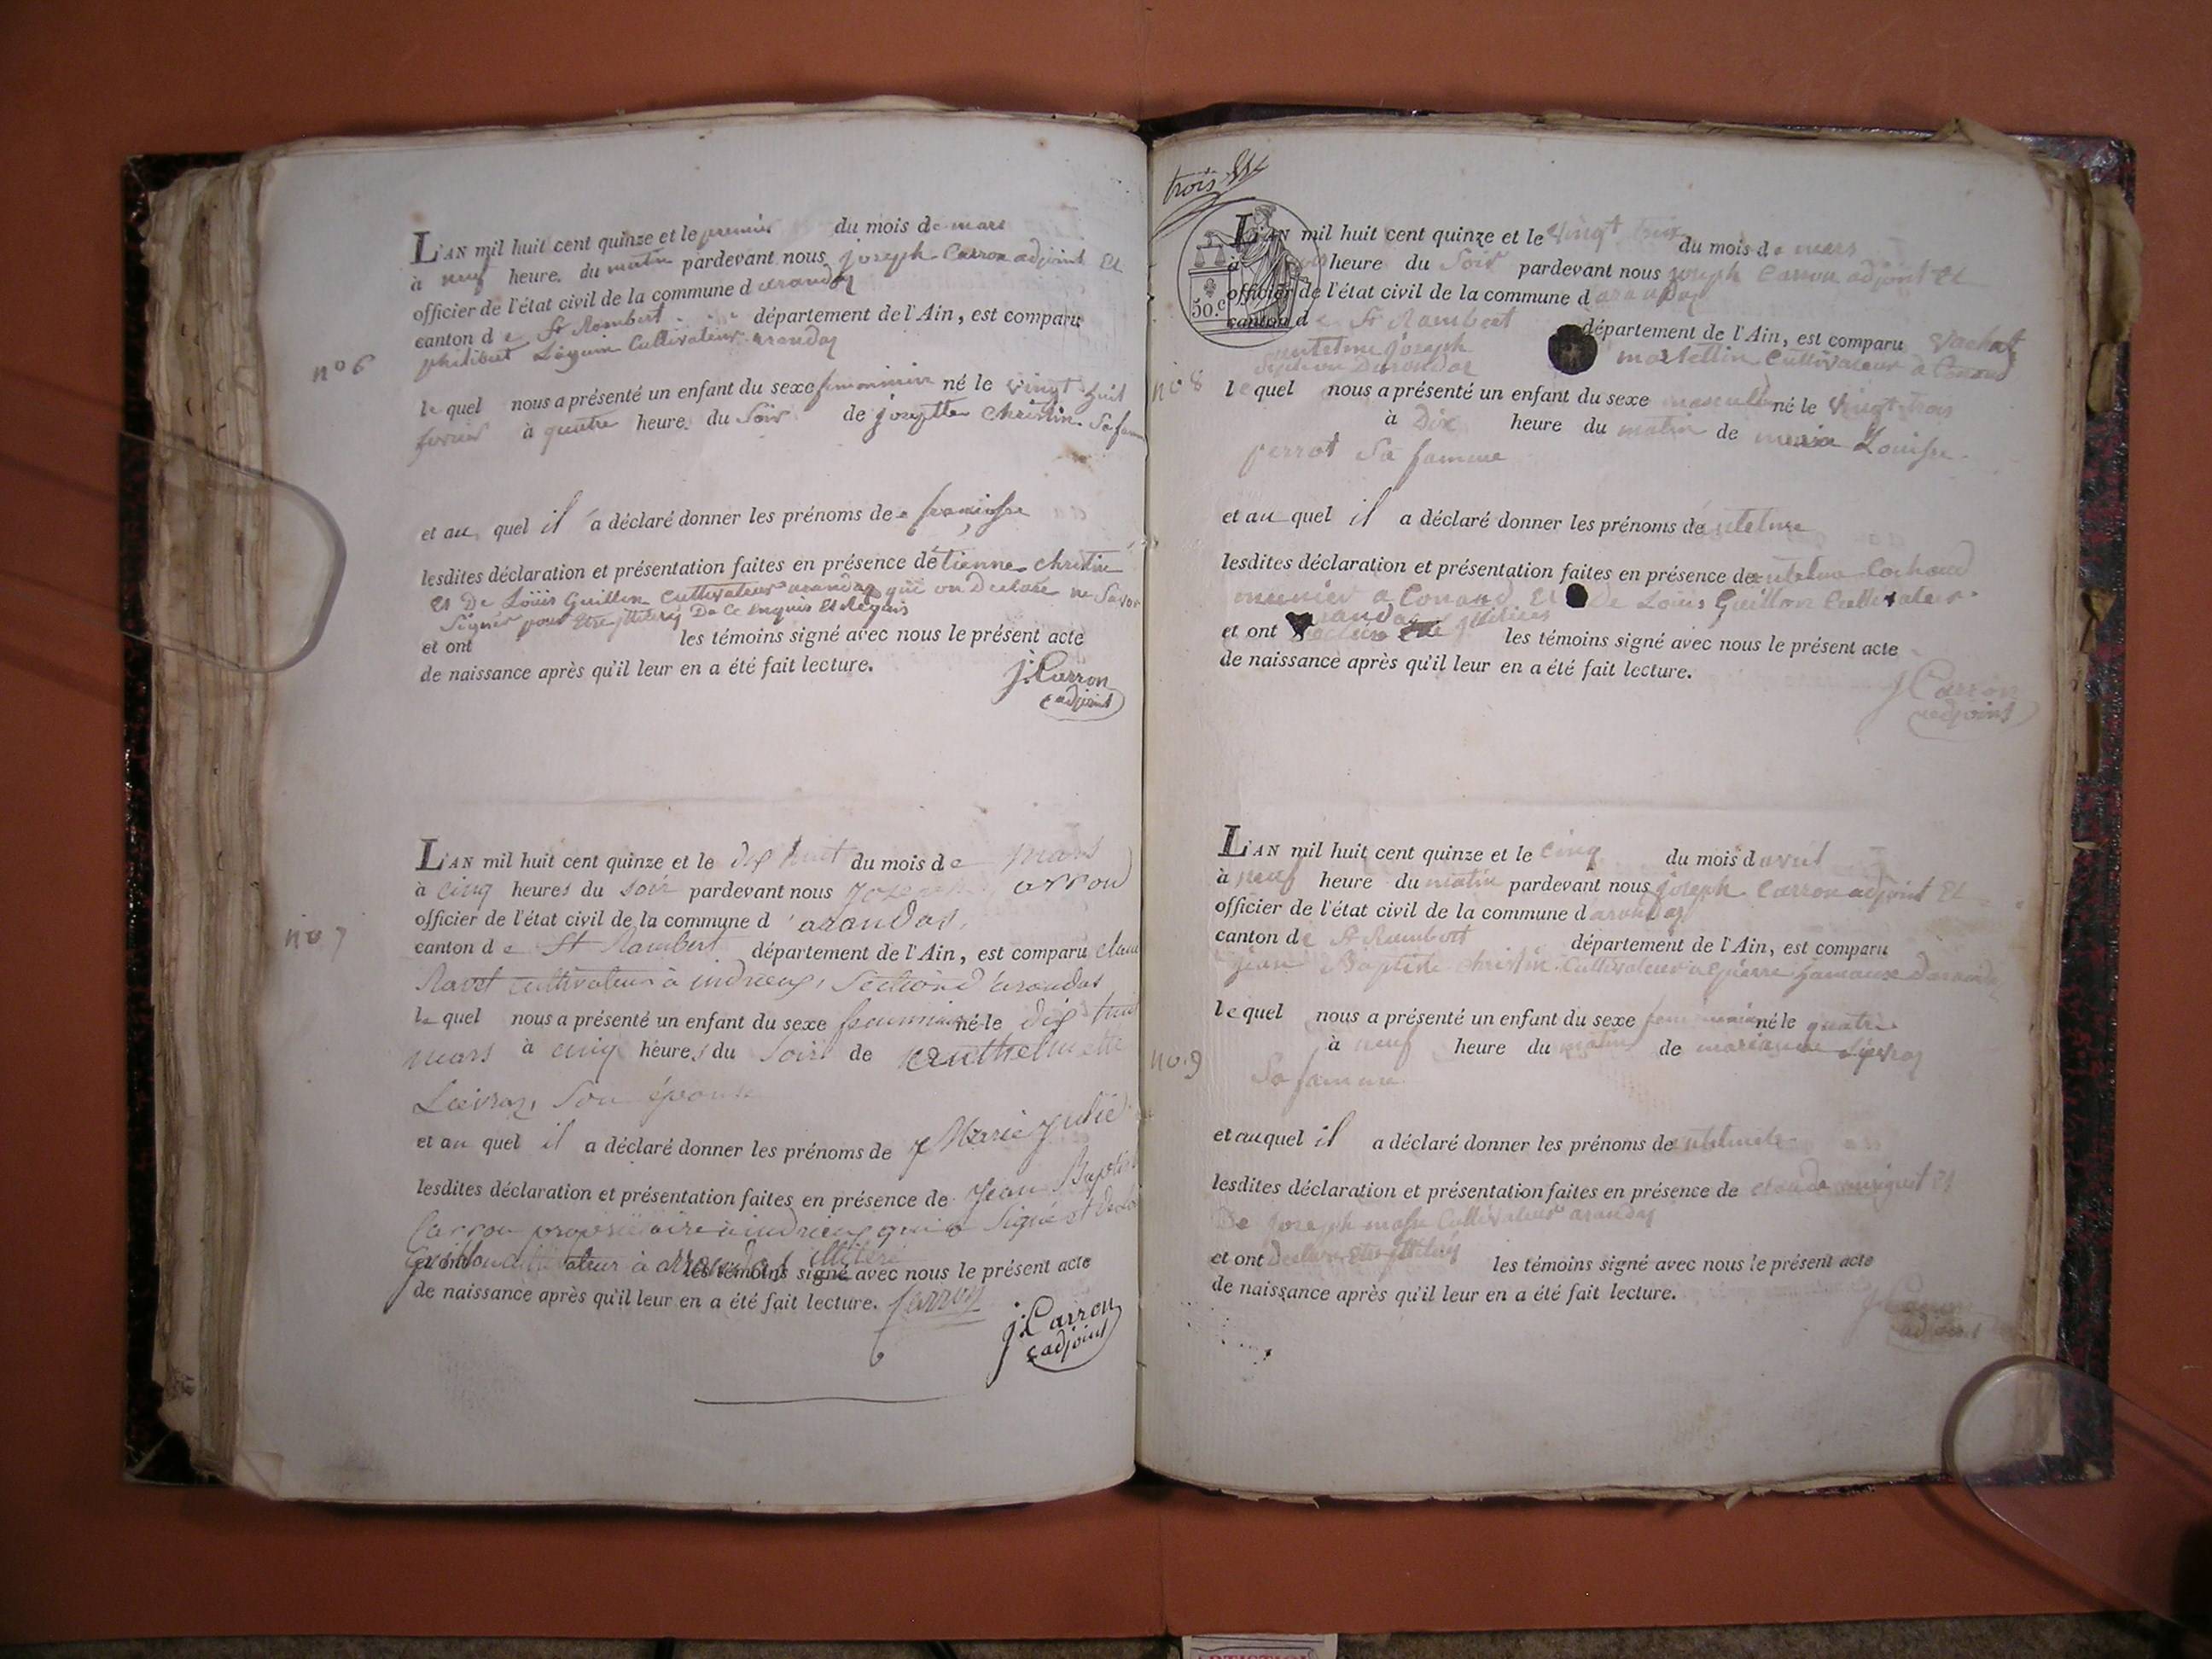 L'AN mil huit cent quinze et le premier du mois de mars
à neuf heure. du matin pardevant nous joseph Carron adjoint Et
officier de l'état civil de la commune d arandas
canton de St Rambert département de l'Ain, est comparu
philibert Cultivateur arandas
n° 6
le quel nous a présenté un enfant du sexe né le vingt huit
à quatre heure. du Soir de josephte Christin Sa
et au quel il a déclaré donner les prénoms de
lesdites déclaration et présentation faites en présence détienne christin
Et De Loüis Guillon Cultivateur arandas qui on Declaré ne Savoir
Signer pour Etre De Ce Enquis Et Requis
et ont les témoins signé avec nous le présent acte
de naissance après qu'il leur en a été fait lecture.
j. Carron
adjoint
L'AN mil huit cent quinze et le dix huit du mois de mars
à cinq heures du soir pardevant nous joseph Carron
officier de l'état civil de la commune d'arandas,
n° 7
canton de St Rambert département de l'Ain, est comparu
Ravet cultivateur à indrieux, Section d'arandas
le quel nous a présenté un enfant du sexe né le dix huit
mars à cinq heures du soir de
son épouse
et au quel il a déclaré donner les prénoms de Marie julie
lesdites déclaration et présentation faites en présence de jean Baptiste
Carron propriétaire à indrieux qui a Signé et de
Guillon cultivateur à arrandas illitéré
et ont les témoins signé avec nous le présent acte
de naissance après qu'il leur en a été fait lecture. Carron
j. Carron
adjoint
trois
50. c
L'AN mil huit cent quinze et le vingt trois du mois de mars
à heure du Soir pardevant nous joseph Carron adjoint Et
officier de l'état civil de la commune d arandas
canton de St Rambert département de l'Ain, est comparu Vachat
antelme joseph Cultivateur à Conand
n° 8
le quel nous a présenté un enfant du sexe masculin né le Vingt trois
à Dix heure du matin de maria Louise
perrot Sa famme
et au quel il a déclaré donner les prénoms de antelme
lesdites déclaration et présentation faites en présence de antelme Cochand
munier a Conand Et De Loüis Guillon Cultivateur
arandas
et ont les témoins signé avec nous le présent acte
de naissance après qu'il leur en a été fait lecture.
j Carron
adjoint
L'AN mil huit cent quinze et le cinq du mois d avril
à neuf heure du matin pardevant nous joseph Carron adjoint Et
officier de l'état civil de la commune d arandas
canton de St Rambert département de l'Ain, est comparu
jean Baptiste christin Cultivateur
le quel nous a présenté un enfant du sexe né le quatre
à neuf heure du matin de marianne
n° 9
Sa famme
et au quel il a déclaré donner les prénoms de
lesdites déclaration et présentation faites en présence de claude Et
De joseph Cultivateur arandas
et ont declaré Etre les témoins signé avec nous le présent acte
de naissance après qu'il leur en a été fait lecture.
j Carron
adjoint